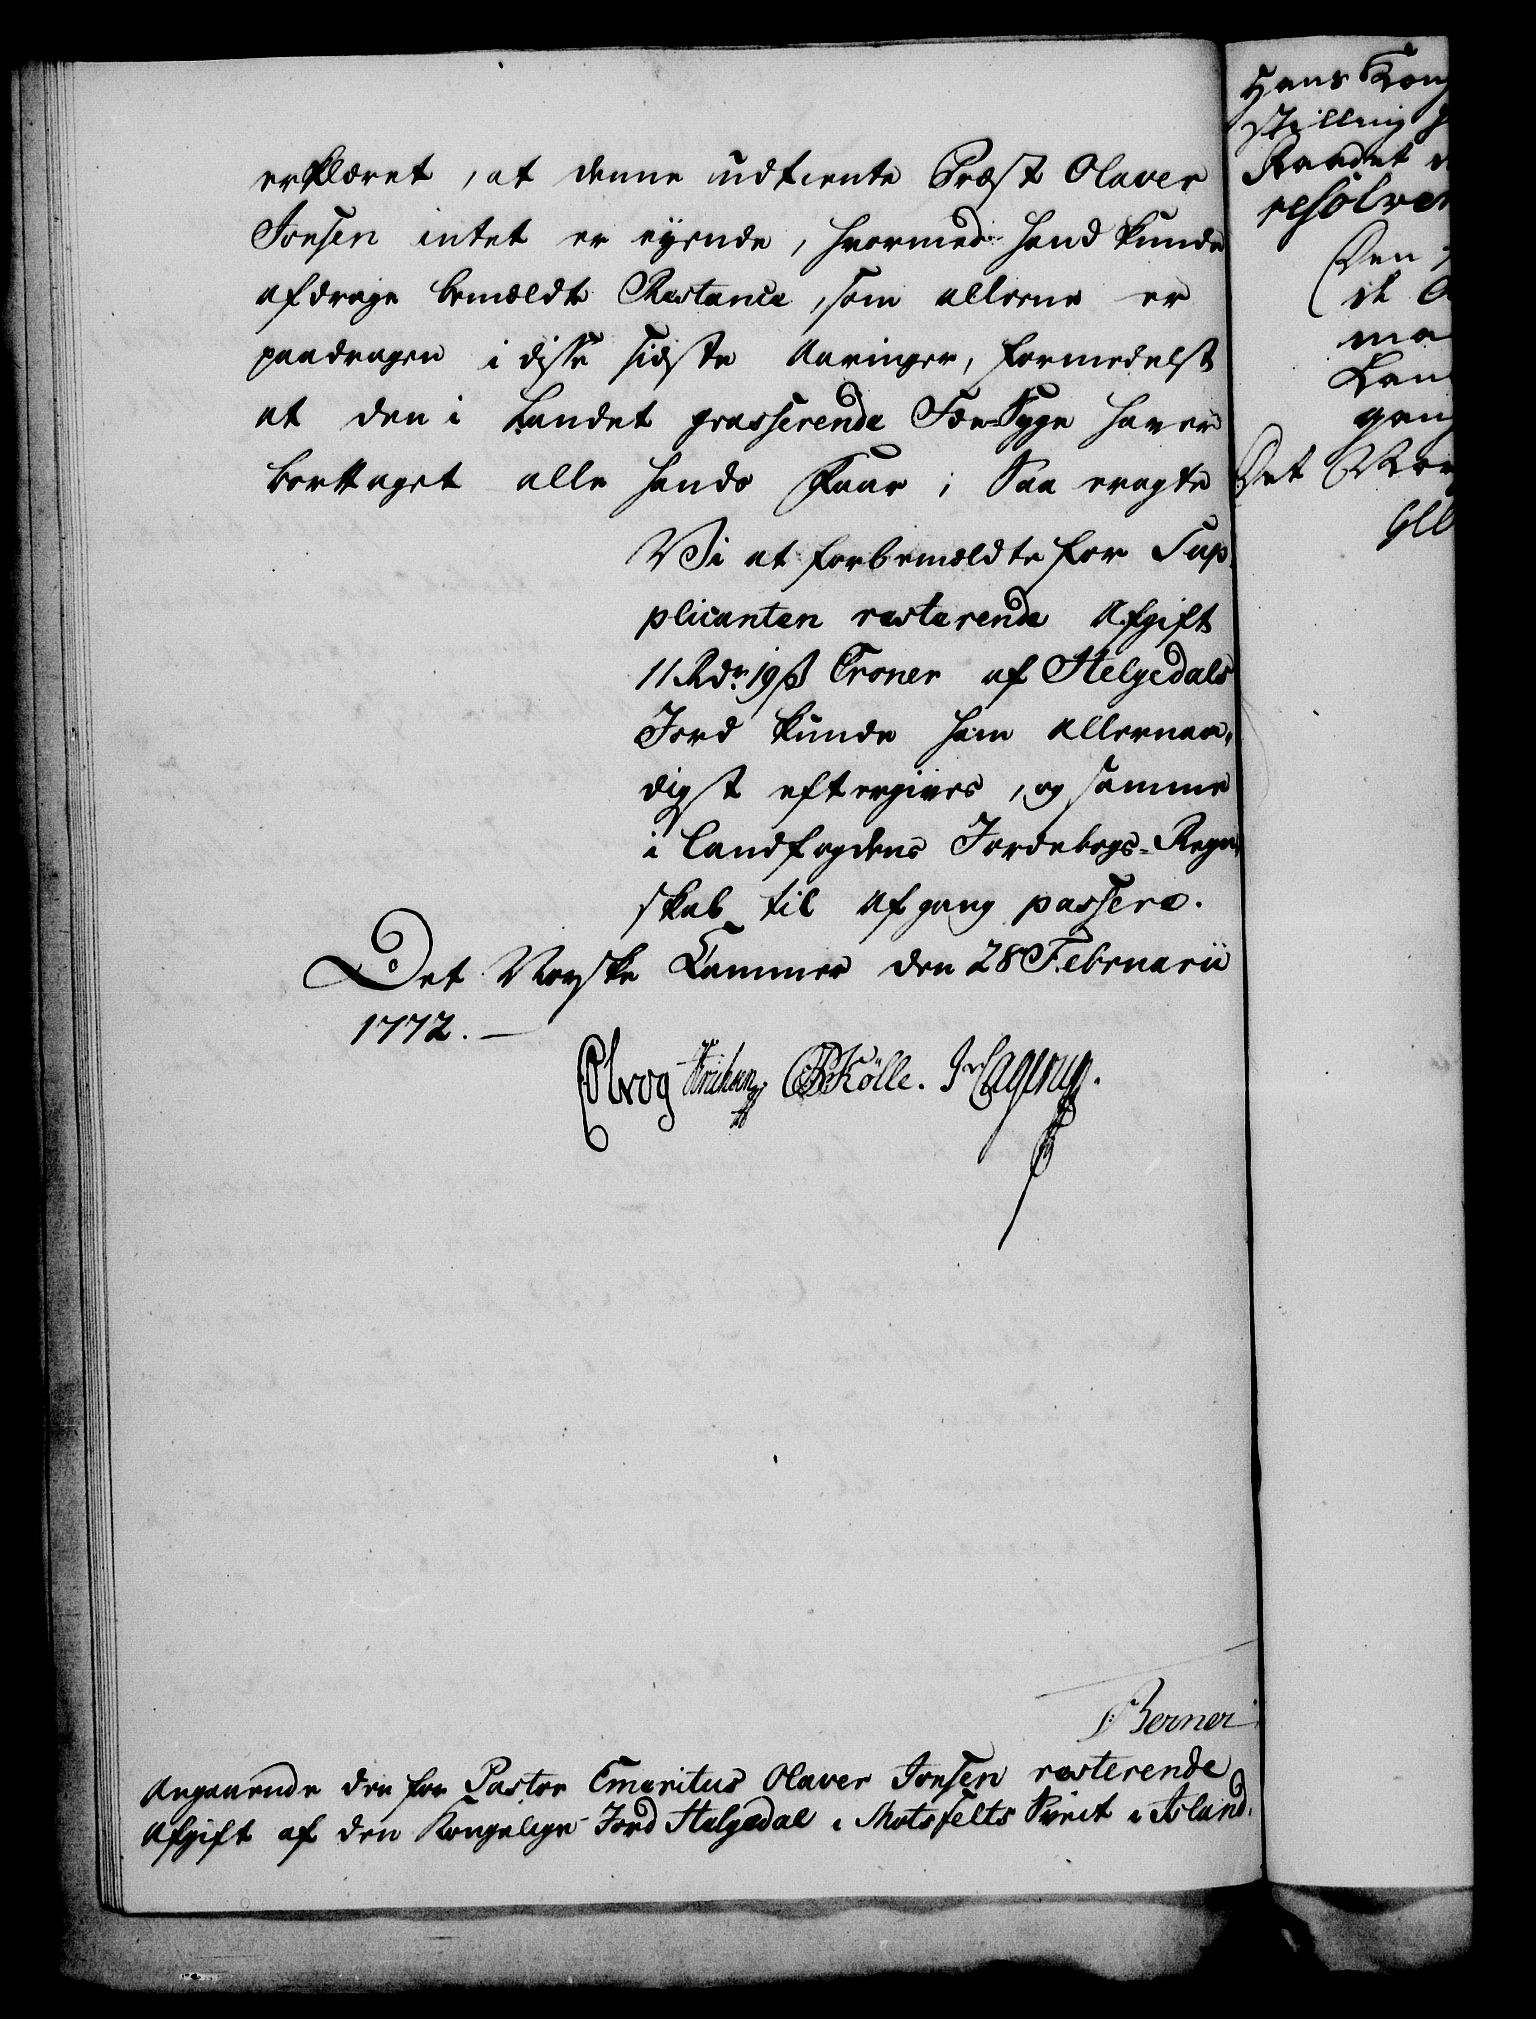 erklæret, at denne udtiente Præst Olaver
Jonsen intet er eyende, hvormed hand kunde
afdrage bemældte Restance, som alleene er
paadragen i disse sidste Aaringer, formedelst
at den i Landet grasserende Fæe-Syge haver
borttaget alle hands Faar; Saa eragte
Vi at forbemældte for Sup-
plicanten resterende Afgift
11 Rdr. 19 ß Croner af Helgedals
Jord kunde ham allernaa-
digst eftergives, og samme
i Landfogdens Jordebogs-Regn-
skab til Afgang passere.
Det Norske Kammer den 28 Februarii
1772.
Kölle. Lagerup.
Berner
Angaaende den for Pastor Emeritus Olaver Jonsen resterende
Afgift af den Kongelige Jord Helgedal i Motsfelts Syrit i Island.
Hans Kong
stilling
Raadet
resolver
Den
de
ma
Lan
gang
Det Nor